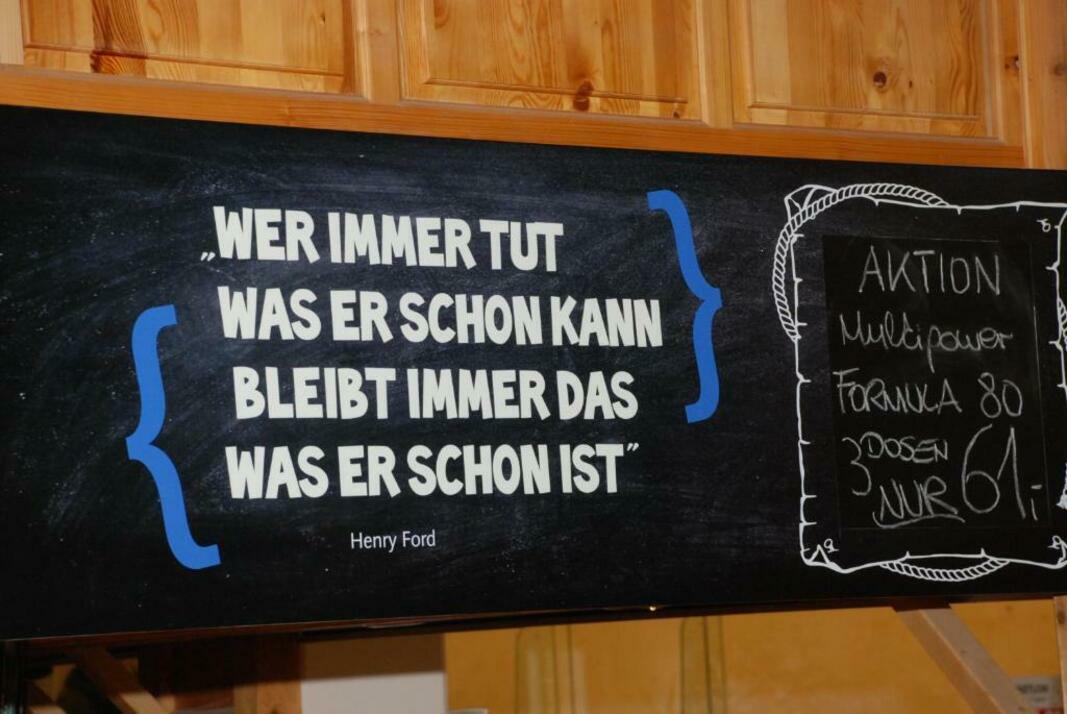 „WER IMMER TUT
WAS ER SCHON KANN
BLEIBT IMMER DAS
WAS ER SCHON IST”
Henry Ford
AKTION
Multipower
FORMULA 80
3 DOSEN
NUR 61,-